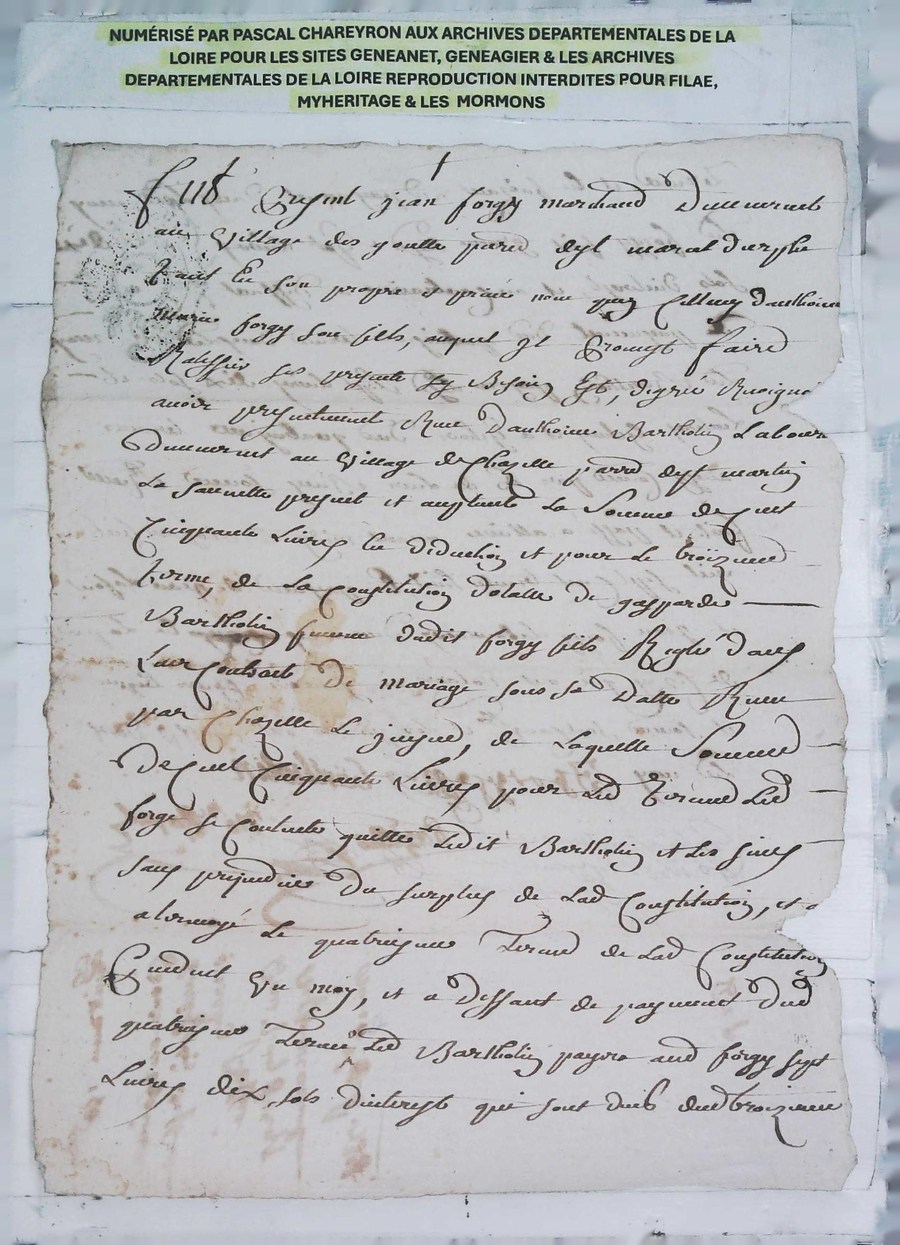 NUMÉRISÉ PAR PASCAL CHAREYRON AUX ARCHIVES DEPARTEMENTALES DE LA
LOIRE POUR LES SITES GENEANET, GENEAGIER & LES ARCHIVES
DEPARTEMENTALES DE LA LOIRE REPRODUCTION INTERDITES POUR FILAE,
MYHERITAGE & LES MORMONS
fut present jean forgy marchand demeurant
au village des goutte
en son propre et privé nom que
marie forgy son fils, auquel yl promest faire
Ratiffier ses presente sy Besoin Est, de gré
avoir presentement Receu d'anthoine Bartholin Labour
demeurant au village de Chazelle parroisse de st martin
La sauvetté present et acceptante La Somme de cent
Cinquante Livres en deduction et pour Le troizieme
terme, de La constitution dotalle de gasparde
Bartholin femme dudit forgy fils Reglé dans
Leur Contract de mariage sous sa Datte Receu
par Chazelle Le jeune, de Laquelle Somme
de Cent Cinquante Livres pour Led terme Led
forge se contente quitte Ledit Bartholin et Les siens
sans prejudice du surplus de Lad Constitution, et a
attermoyé Le quatriesme Terme de Lad Constitution
Pendant un moy, et a deffaut de payement dud
quatriesme Terme Led Bartholin payera aud forgy sept
Livres dix sols d'interest qui sont dubs dud troizieme